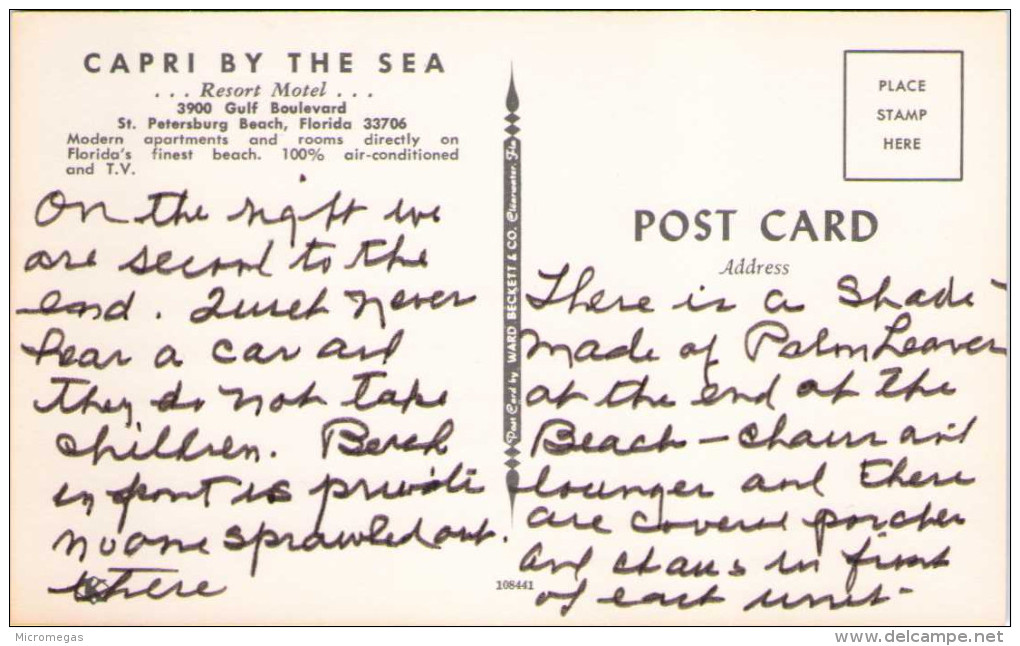 CAPRI BY THE SEA
. . . Resort Motel . . .
3900 Gulf Boulevard
St. Petersburg Beach, Florida 33706
Modern apartments and rooms directly on
Florida's finest beach. 100% air-conditioned
and T.V.
On the right we
are second to the
end. Quiet never
hear a car and
they do not take
children. Beach
in front is private
no one sprawled out.
there
Post Card by WARD BECKETT & CO. Clearwater, Fla.
108441
PLACE
STAMP
HERE
POST CARD
Address
There is a Shade
made of Palm Leaves
at the end at the
Beach — chairs and
lounges and there
are covered porches
and chairs in front
of each unit-
Micromegas
www.delcampe.net